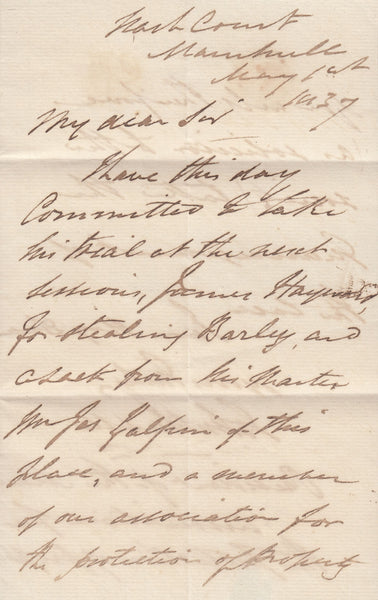 Nash Court
Marnhull
May 1st
1837
My dear Sir
I have this day
Committed to take
his trial at the next
sessions, James Hayward,
for stealing Barley, and
a sack from his Master
Mr Jas Galpin of this
place, and a member
of our association for
the protection of Property